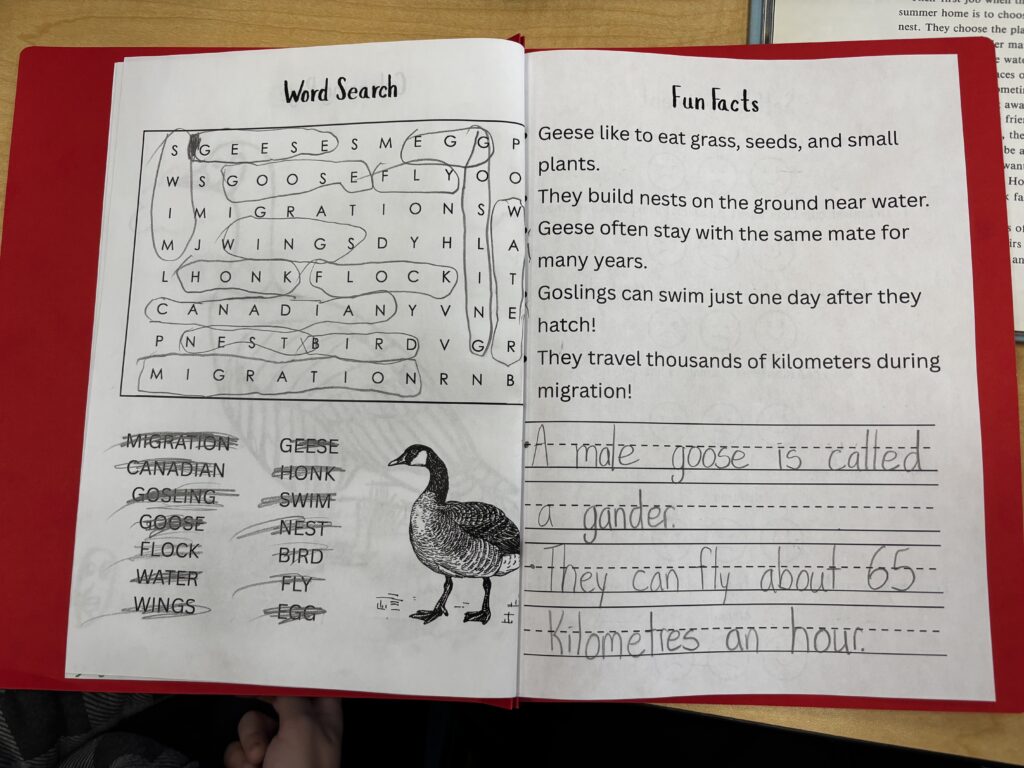 Word Search
S G E E S E S M E G G P
W S G O O S E F L Y O O
I M I G R A T I O N S W
M J W I N G S D Y H L A
L H O N K F L O C K I T
C A N A D I A N Y V N E
P N E S T B I R D V G R
M I G R A T I O N R N B
MIGRATION
CANADIAN
GOSLING
GOOSE
FLOCK
WATER
WINGS
GEESE
HONK
SWIM
NEST
BIRD
FLY
EGG
Fun Facts
Geese like to eat grass, seeds, and small
plants.
They build nests on the ground near water.
Geese often stay with the same mate for
many years.
Goslings can swim just one day after they
hatch!
They travel thousands of kilometers during
migration!
A male goose is called
a gander.
They can fly about 65
Kilometres an hour.
summer home is to
nest. They choose the